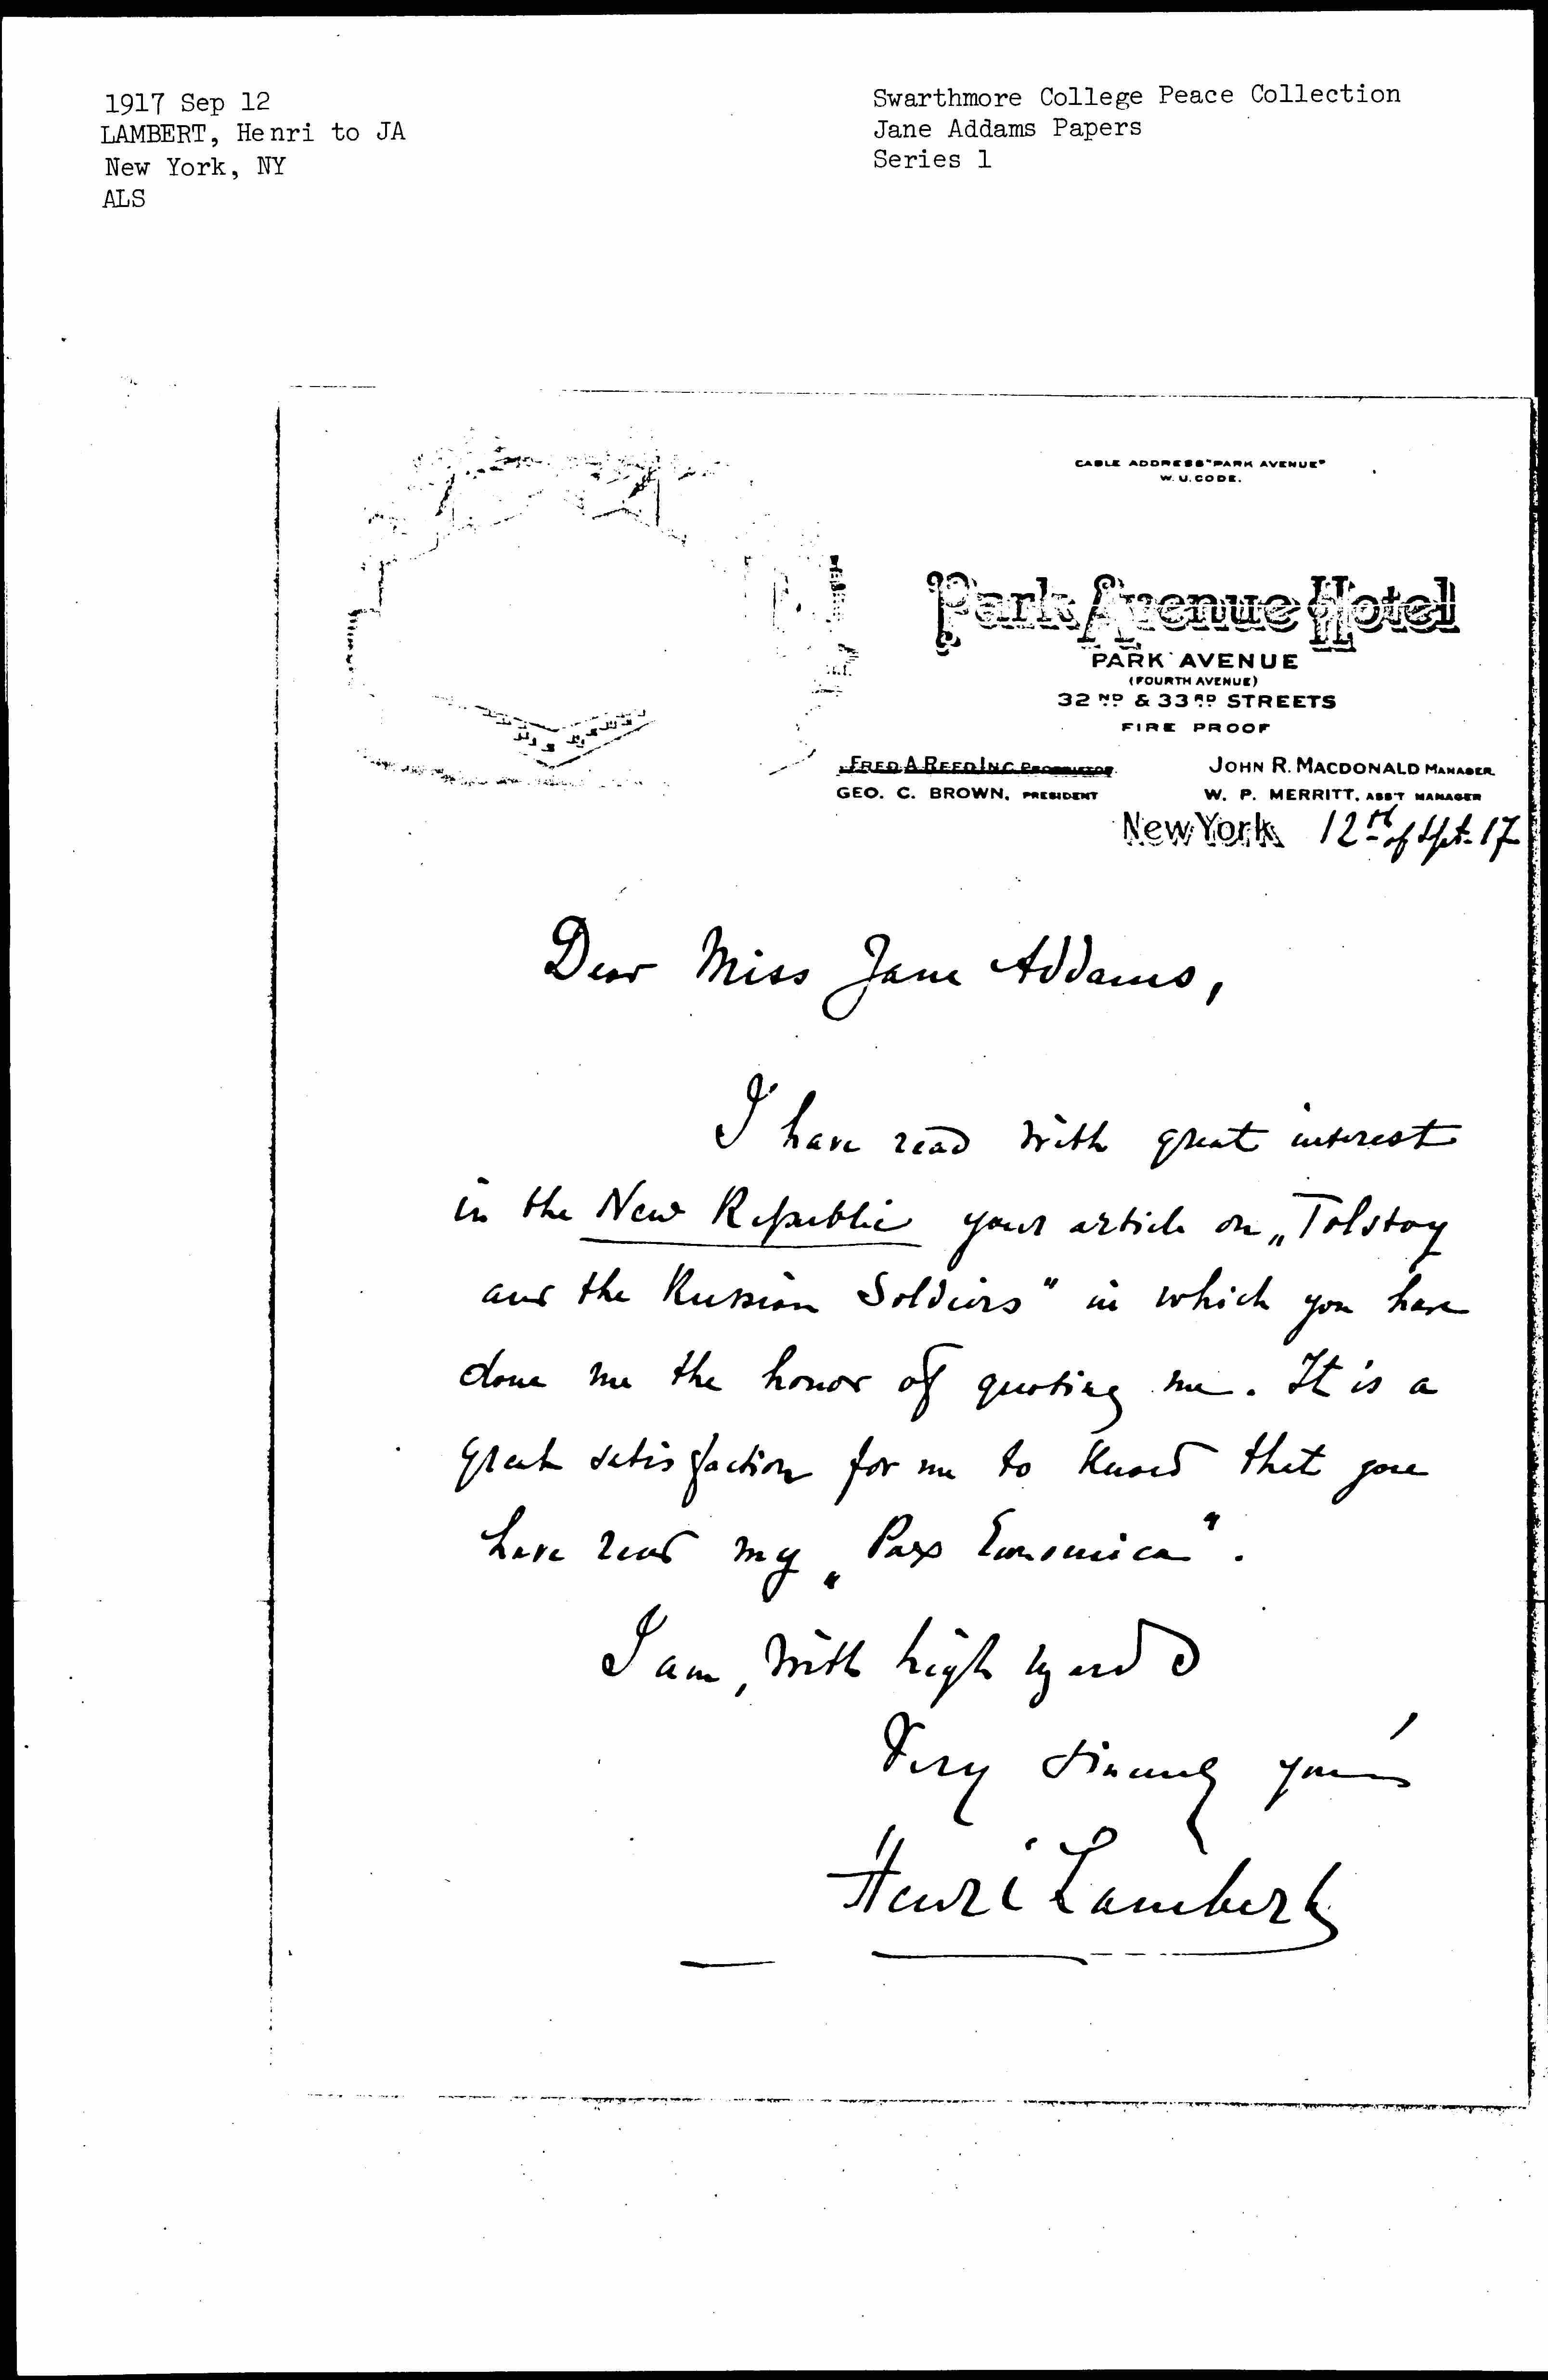 1917 Sep 12
LAMBERT, Henri to JA
New York, NY
ALS
Swarthmore College Peace Collection
Jane Addams Papers
Series 1
CABLE ADDRESS "PARK AVENUE"
W. U. CODE.
Park Avenue Hotel
PARK AVENUE
(FOURTH AVENUE)
32ND & 33RD STREETS
FIRE PROOF
FRED A REED INC PROPRIETOR
JOHN R. MACDONALD MANAGER.
GEO. C. BROWN, PRESIDENT
W. P. MERRITT, ASS'T MANAGER
New York 12th of Sept. 17
Dear Miss Jane Addams,
I have read with great interest
in the New Republic your article on „Tolstoy
and the Russian Soldiers" in which you have
done me the honor of quoting me. It is a
great satisfaction for me to know that you
have read my „Pax Economica".
I am, with high regard
Very sincerely yours
Henri Lambert